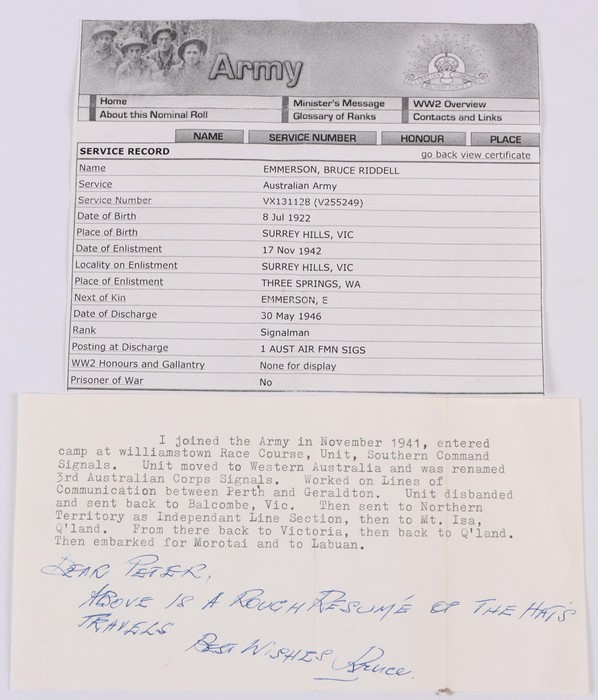 Army
Home Minister's Message WW2 Overview
About this Nominal Roll Glossary of Ranks Contacts and Links
NAME SERVICE NUMBER HONOUR PLACE
SERVICE RECORD go back view certificate
Name EMMERSON, BRUCE RIDDELL
Service Australian Army
Service Number VX131128 (V255249)
Date of Birth 8 Jul 1922
Place of Birth SURREY HILLS, VIC
Date of Enlistment 17 Nov 1942
Locality on Enlistment SURREY HILLS, VIC
Place of Enlistment THREE SPRINGS, WA
Next of Kin EMMERSON, E
Date of Discharge 30 May 1946
Rank Signalman
Posting at Discharge 1 AUST AIR FMN SIGS
WW2 Honours and Gallantry None for display
Prisoner of War No
I joined the Army in November 1941, entered
camp at williamstown Race Course, Unit, Southern Command
Signals. Unit moved to Western Australia and was renamed
3rd Australian Corps Signals. Worked on Lines of
Communication between Perth and Geraldton. Unit disbanded
and sent back to Balcombe, Vic. Then sent to Northern
Territory as Independant Line Section, then to Mt. Isa,
Q'land. From there back to Victoria, then back to Q'land.
Then embarked for Morotai and to Labuan.
DEAR PETER,
ABOVE IS A ROUGH RESUMÉ OF THE HAT'S
TRAVELS
BEST WISHES Bruce.